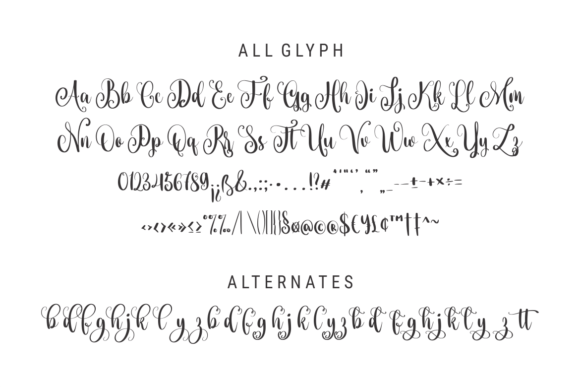 ALL GLYPH
Aa Bb Cc Dd Ee Ff Gg Hh Ii Jj Kk Ll Mm
Nn Oo Pp Qq Rr Ss Tt Uu Vv Ww Xx Yy Zz
0123456789¡¿ß&.,:;·…!?#
%‰/|\()[]{}§@©®$€¥£¢™†‡^~
ALTERNATES
b d f g h j k l y z b d f g h j k l y z b d f g h j k l y z tt